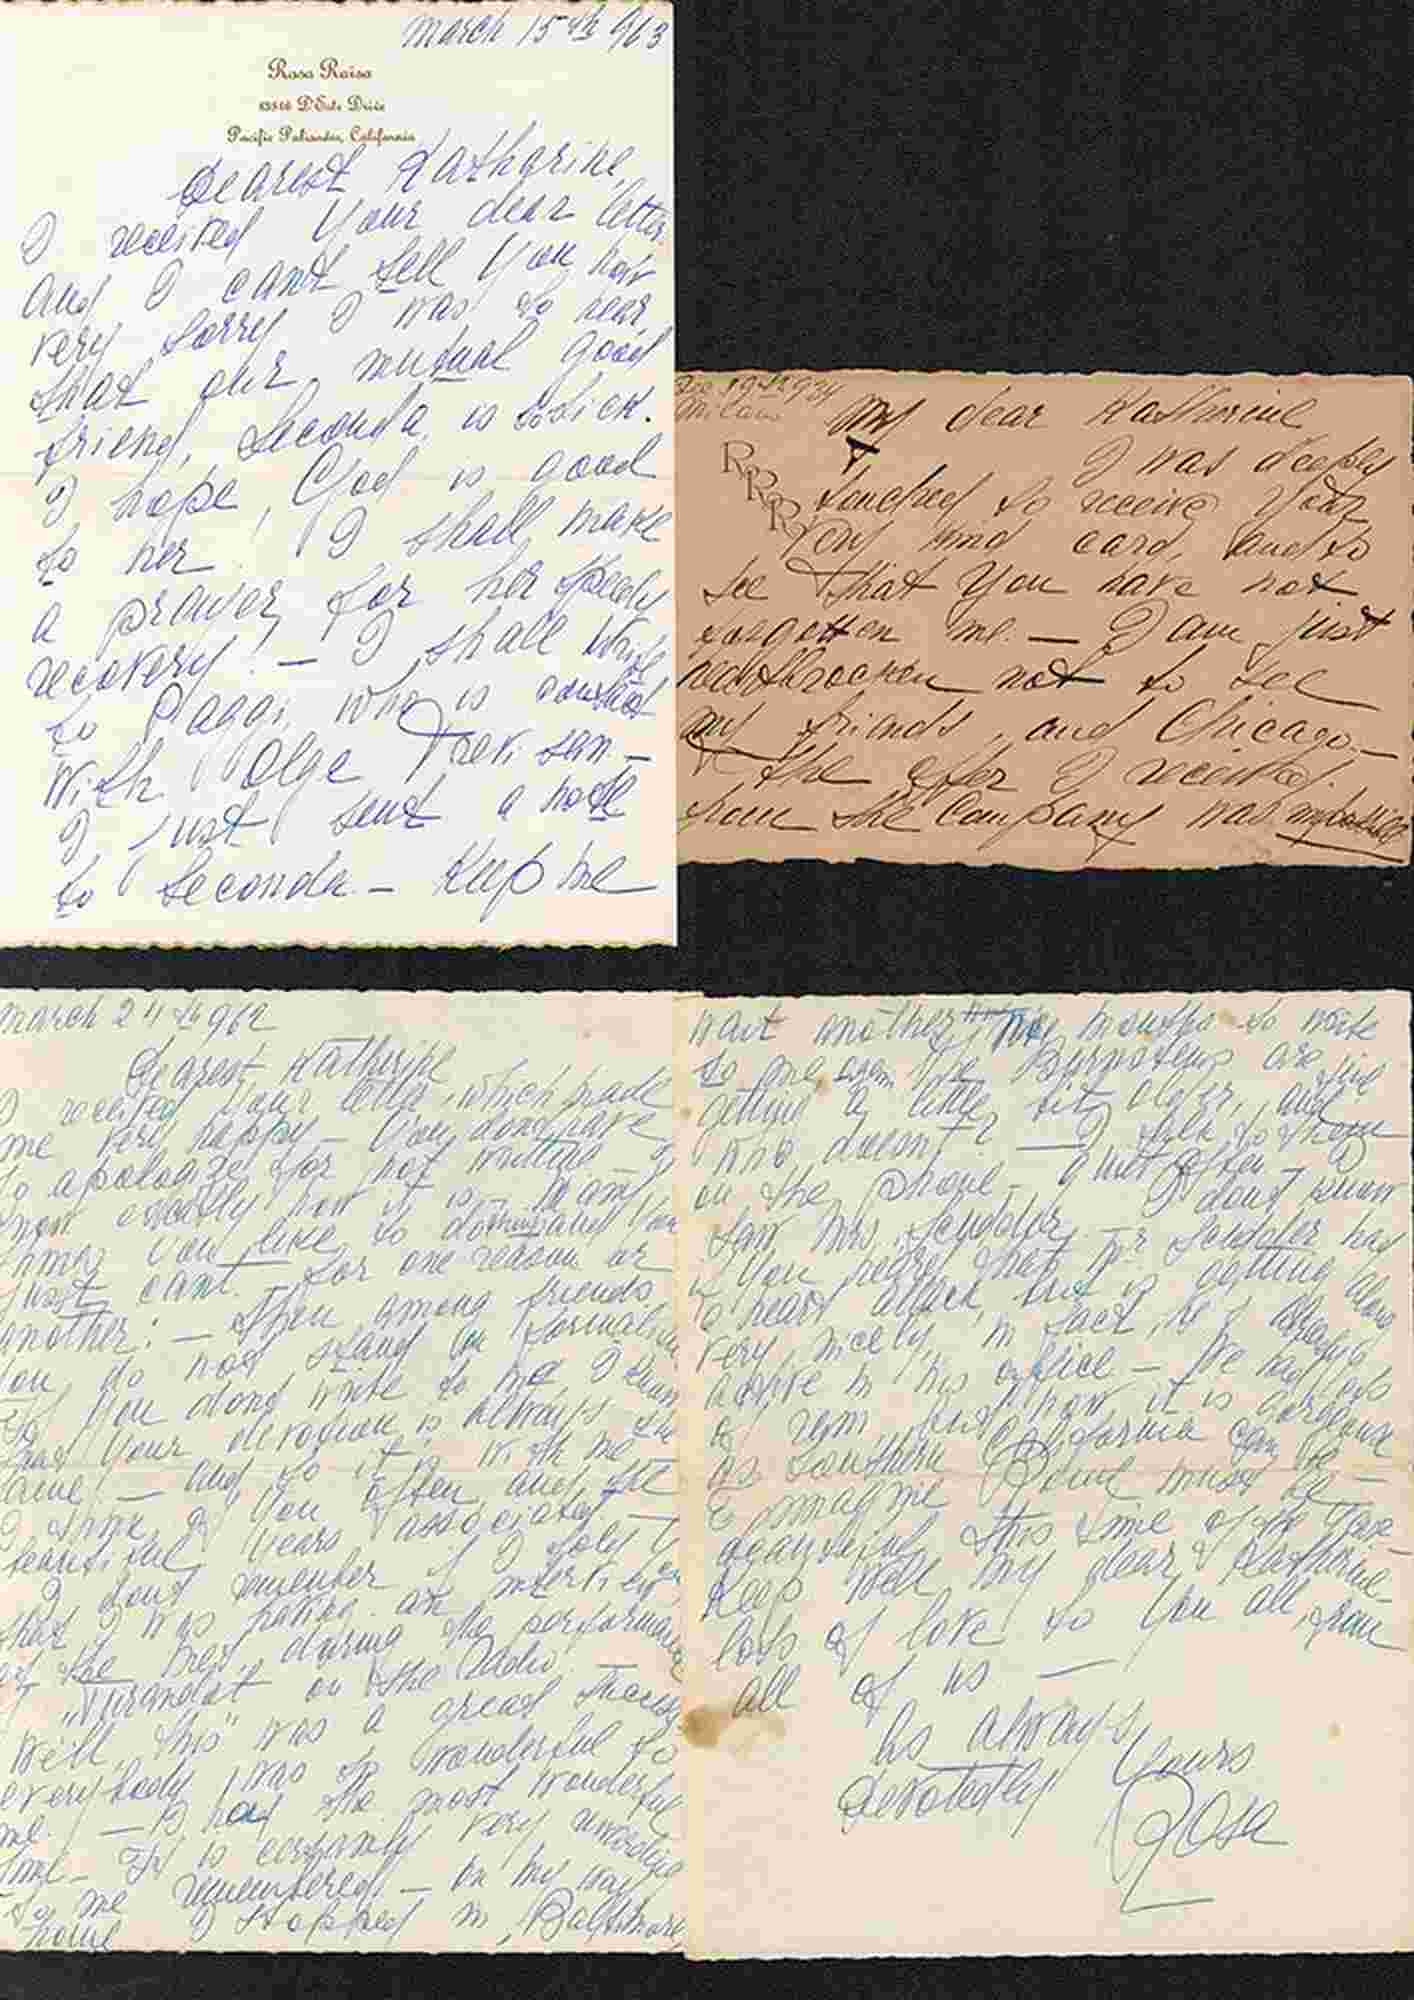 March 15th 963
Rosa Raisa
D'Este Drive
Pacific Palisades, California
Dearest Katharine,
I received your dear letter
and I cant tell you how
very sorry I was to hear,
that our mutual good
friend, Seconda, is so sick.
I hope, God is good
to her! I shall make
a prayer for her speedy
recovery! — I shall write
to Raggi, who is
with Olge Trevisan. —
I just sent a note
to Seconda — Keep me
Dec. 19th 934
Milano
My dear Katherine
RRR
I was deeply
touched to receive your
very kind card, and to
see that you have not
forgotten me. — I am just
not to see
my friends, and Chicago. —
The offer I received
from the Company was
March 24th 962
Dearest Katherine
I received your letter, which made
me very happy — You dont have
to apologize for not writing — I
know exactly how it is — Many
times you like to and you
just cant for one reason or
another: — Then among friends
you do not stand on
If you dont write to me I know
that your devotion is always the
same! — and so it is with me —
I think of you often and the
beautiful years associated —
I dont remember if I told
that I was having an
at the Met, during the performance
of "Turandot" on the Radio. —
Well, this was a great success
everybody was so wonderful to
me. — I had the most wonderful
time — It is certainly very
to me remembered — On my way
home I stopped in Baltimore
wait another months to write
to me. The Burnsteins are just
getting a little bit older, and
who doesnt? — I talk to them
on the phone — quite often — I
saw Mrs. Scudder — I dont know
if you heard that Mr Scudder had
a heart attack but is getting along
very nicely, in fact, he is
active in his office — We had lots
of rain just now it is gorgeous
as Southern California can be —
I imagine must be
beautiful this time of the
Keep well my dear Katherine
lots of love to you all, from
all of us —
As always,
Yours
devotedly
Rosa